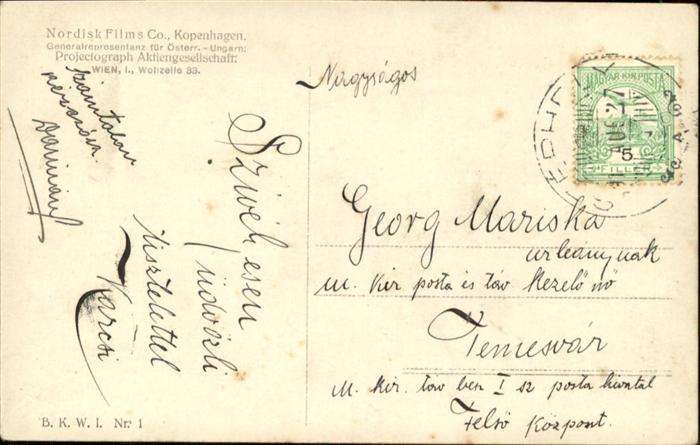 Nordisk Films Co., Kopenhagen.
Generalrepresentanz für Österr.-Ungarn:
Projectograph Aktiengesellschaft.
WIEN, I., Wollzeile 33.
Szívélyesen
üdvözli
tisztelettel
Karcsi
B. K. W. I. Nr. 1
Nagyságos
Georg Mariska
urleánynak
m. kir posta és táv kezelő nő
Temesvár
m. kir. táv ben I sz posta hivatal
Felső Központ.
MAGYAR KIR. POSTA
5
FILLÉR